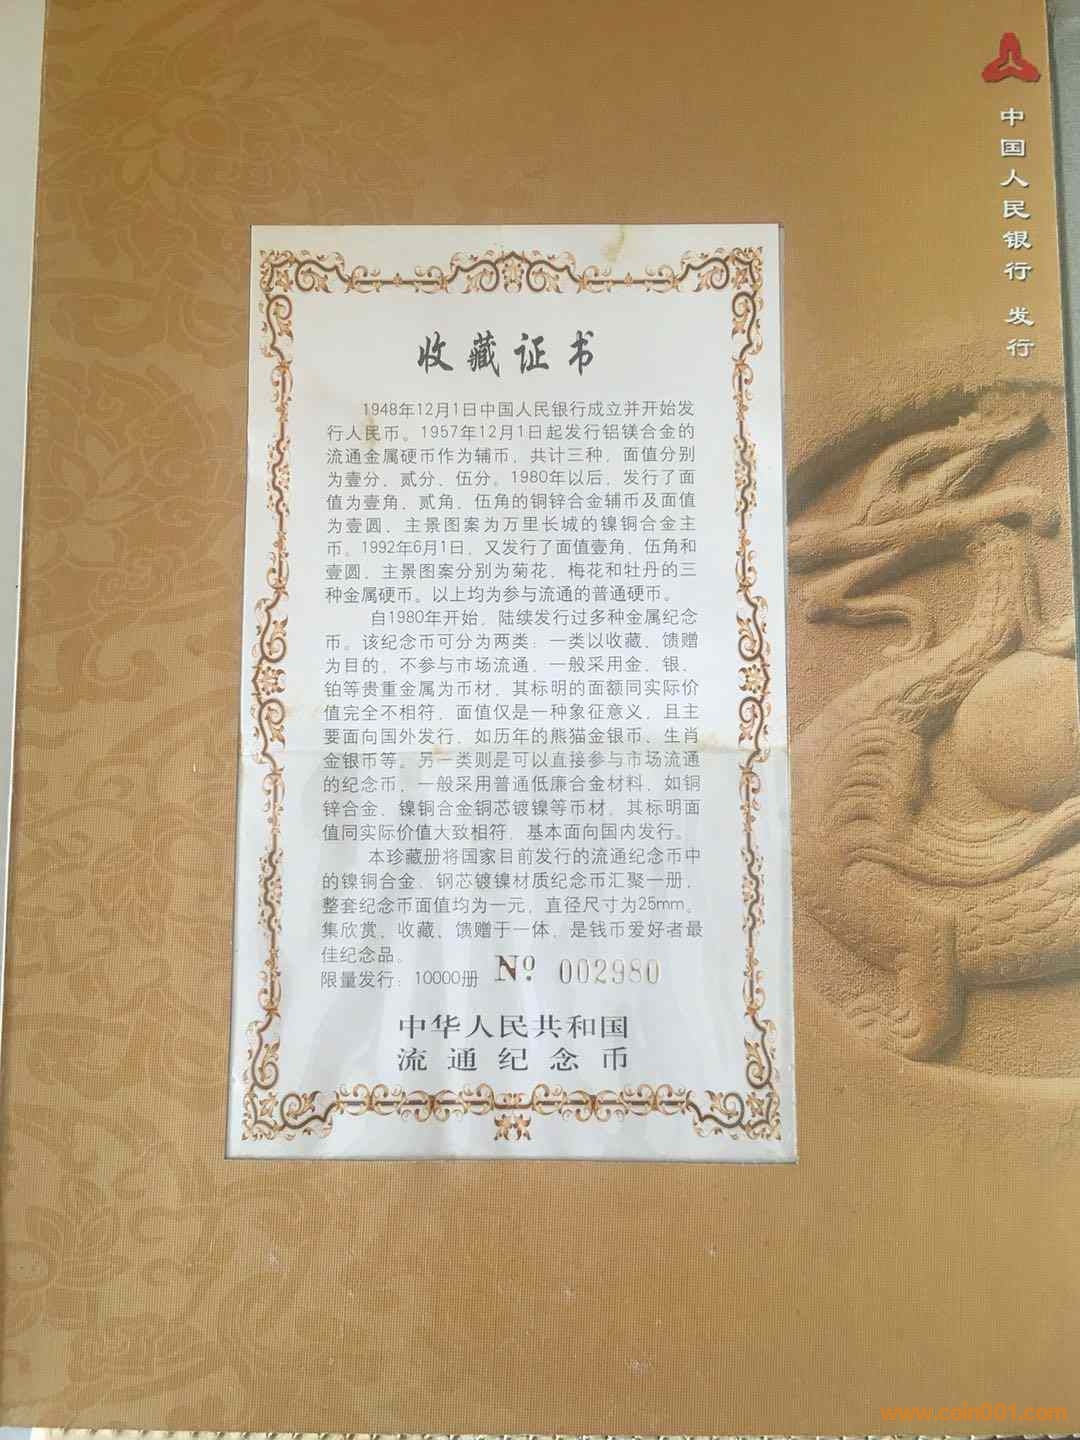 中国人民银行 发行
收藏证书
1948年12月1日中国人民银行成立并开始发
行人民币。1957年12月1日起发行铝镁合金的
流通金属硬币作为辅币，共计三种，面值分别
为壹分、贰分、伍分。1980年以后，发行了面
值为壹角、贰角、伍角的铜锌合金辅币及面值
为壹圆，主景图案为万里长城的镍铜合金主
币。1992年6月1日，又发行了面值壹角、伍角和
壹圆，主景图案分别为菊花、梅花和牡丹的三
种金属硬币。以上均为参与流通的普通硬币。
自1980年开始，陆续发行过多种金属纪念
币。该纪念币可分为两类：一类以收藏、馈赠
为目的，不参与市场流通，一般采用金、银、
铂等贵重金属为币材，其标明的面额同实际价
值完全不相符，面值仅是一种象征意义，且主
要面向国外发行，如历年的熊猫金银币、生肖
金银币等。另一类则是可以直接参与市场流通
的纪念币，一般采用普通低廉合金材料，如铜
锌合金、镍铜合金铜芯镀镍等币材，其标明面
值同实际价值大致相符，基本面向国内发行。
本珍藏册将国家目前发行的流通纪念币中
的镍铜合金、钢芯镀镍材质纪念币汇聚一册，
整套纪念币面值均为一元，直径尺寸为25mm。
集欣赏、收藏、馈赠于一体，是钱币爱好者最
佳纪念品。
限量发行：10000册 Nº 002980
中华人民共和国
流通纪念币
www.coin001.com